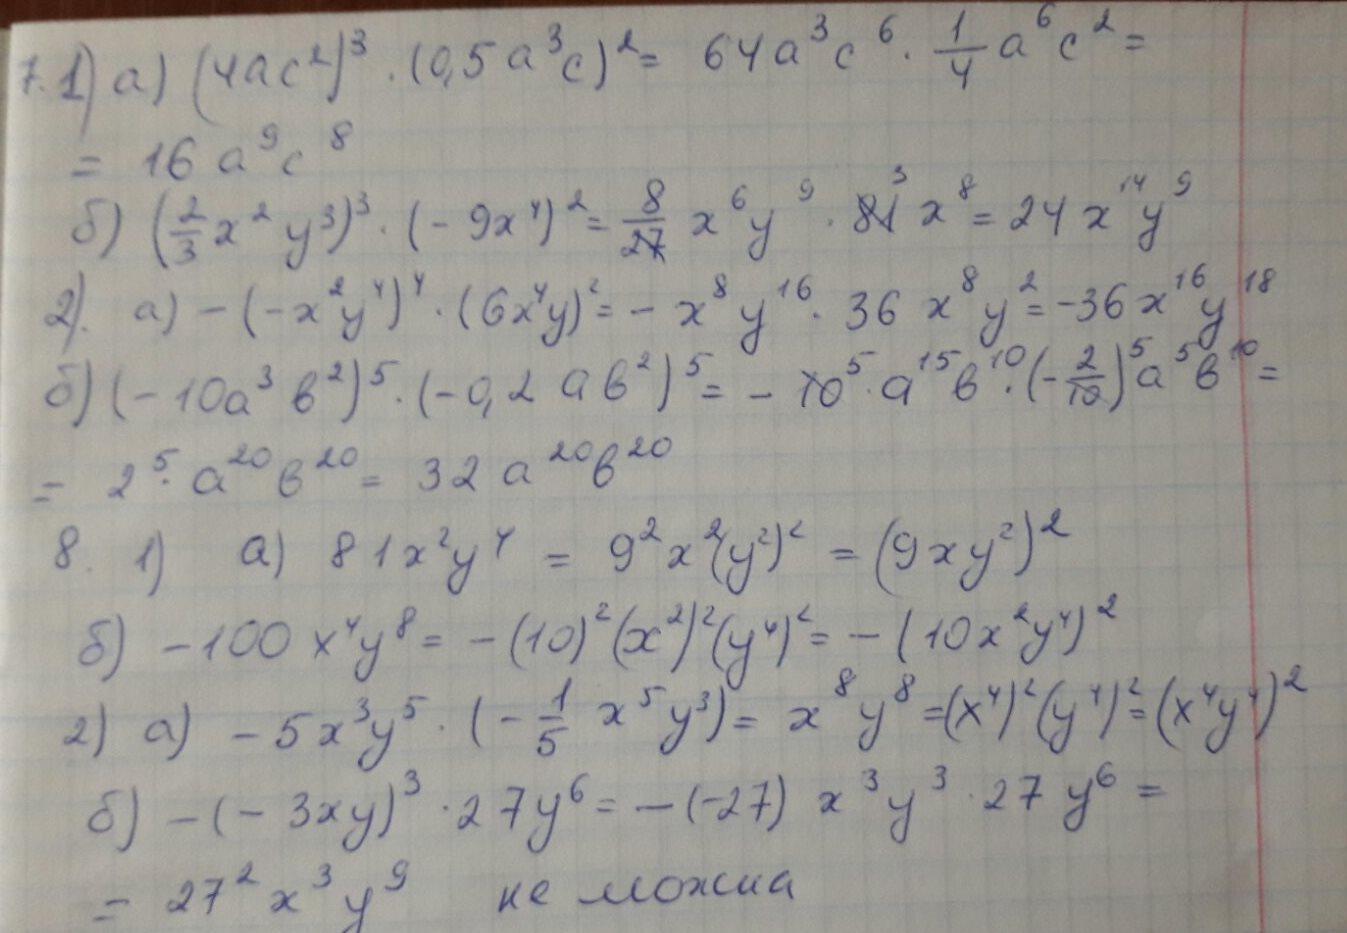 7. 1) а) (4ac²)³ · (0,5a³c)² = 64a³c⁶ · 1/4 a⁶c² =
= 16a⁹c⁸
б) (2/3 x²y³)³ · (- 9x⁴)² = 8/27 x⁶y⁹ · 81³ x⁸ = 24x¹⁴y⁹
2). а) - (-x²y⁴)⁴ · (6x⁴y)² = - x⁸y¹⁶ · 36x⁸y² = -36x¹⁶y¹⁸
б) (- 10a³в²)⁵ · (-0,2aв²)⁵ = - 10⁵ · a¹⁵в¹⁰ · (-2/10)⁵a⁵в¹⁰ =
= 2⁵ · a²⁰в²⁰ = 32a²⁰в²⁰
8. 1) а) 81x²y⁴ = 9²x²(y²)² = (9xy²)²
б) -100x⁴y⁸ = -(10)²(x²)²(y⁴)² = - (10x²y⁴)²
2) а) - 5x³y⁵ · (-1/5 x⁵y³) = x⁸y⁸ = (x⁴)²(y⁴)² = (x⁴y⁴)²
б) - (- 3xy)³ · 27y⁶ = - (-27) x³y³ · 27y⁶ =
= 27²x³y⁹ не можна